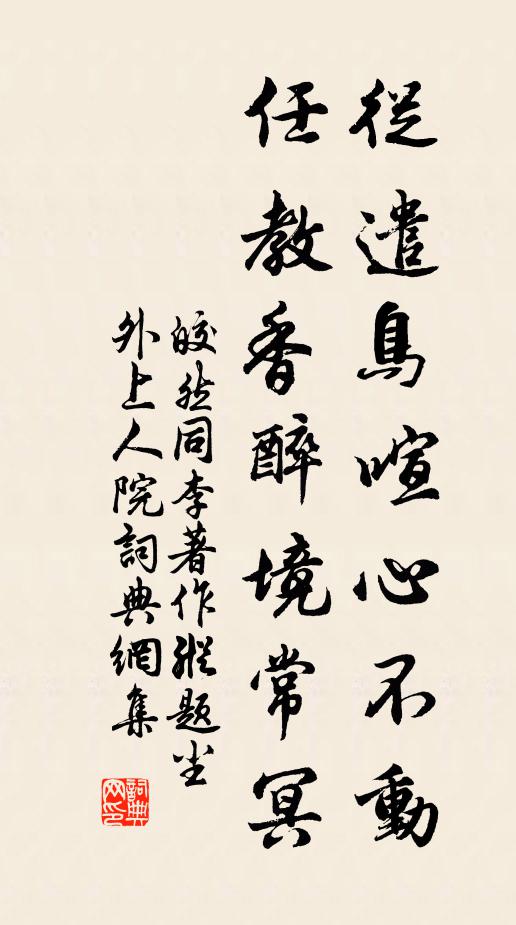 從遣鳥喧心不動
任教香醉境常冥
皎然同李著作縱題尘
外上人院詞典網集
詞典网印